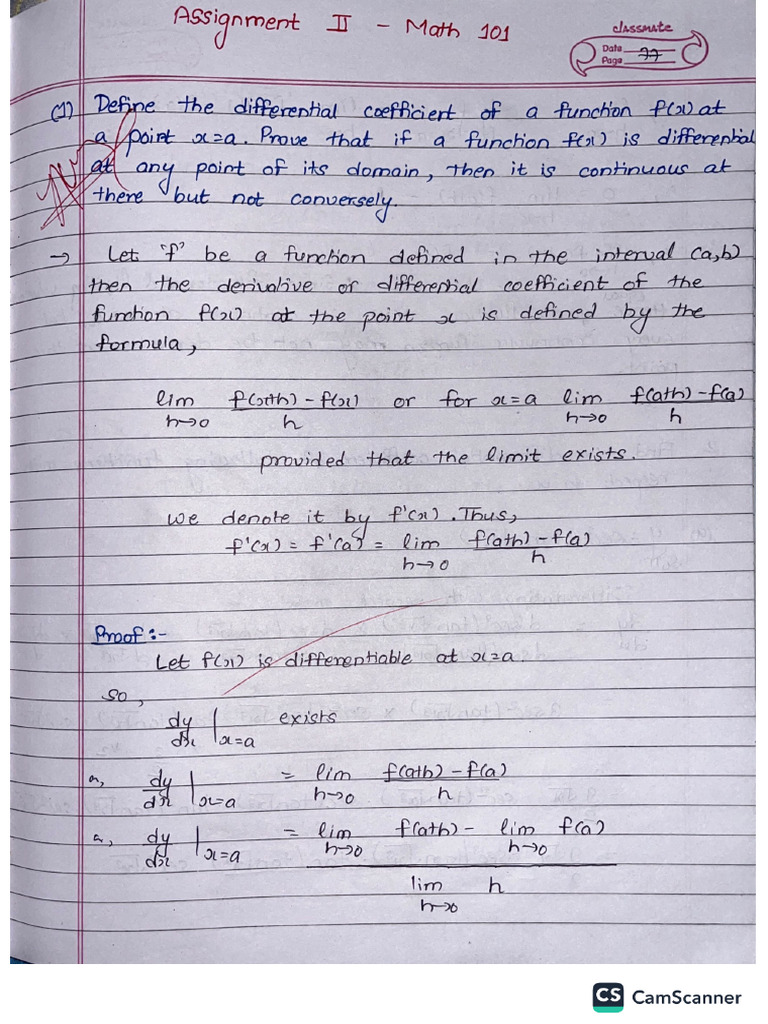 Assignment II - Math 101
classmate
Date
Page 77
(1) Define the differential coefficient of a function f(x) at
a point x=a. Prove that if a function f(x) is differential
at any point of its domain, then it is continuous at
there but not conversely.
→ Let 'f' be a function defined in the interval (a,b)
then the derivative or differential coefficient of the
function f(x) at the point x is defined by the
formula,
lim h→0 f(x+h)-f(x) / h or for x=a lim h→0 f(a+h)-f(a) / h
provided that the limit exists.
we denote it by f'(x). Thus,
f'(x) = f'(a) = lim h→0 f(a+h)-f(a) / h
Proof:-
Let f(x) is differentiable at x=a.
so,
dy/dx | x=a exists
a, dy/dx | x=a = lim h→0 f(a+h)-f(a) / h
a, dy/dx | x=a = lim h→0 f(a+h) - lim h→0 f(a) / lim h→0 h
CS CamScanner